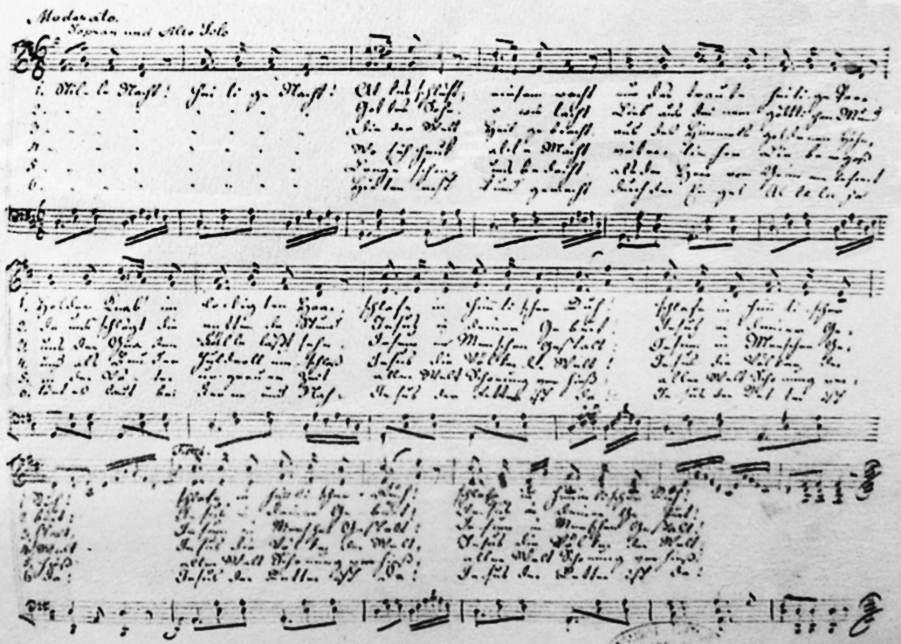 Moderato.
Sopran und Alto Solo
1. Stille Nacht! Heilige Nacht! Alles schläft; einsam wacht nur das traute heilige Paar.
2. Gottes Sohn! o wie lacht Lieb' aus deinem göttlichen Mund
3. Die der Welt Heil gebracht, aus des Himmels goldenen Höhn,
4. Wo sich heut alle Macht väterlicher Liebe ergoß
5. Lange schon uns bedacht, als der Herr vom Grimme befreit
6. Hirten erst kund gemacht durch der Engel Alleluja
1. Holder Knab' im lockigten Haar; schlafe in himmlischer Ruh! schlafe in himmlischer
2. Da uns schlägt die rettende Stund. Jesus in deiner Geburt! Jesus in deiner Ge-
3. uns der Gnaden Fülle läßt sehn, Jesum in Menschengestalt! Jesum in Menschen Ge-
4. und als Bruder huldvoll umschloß Jesus die Völker der Welt! Jesus die Völker der
5. In der Väter urgrauer Zeit aller Welt Schonung verhieß! aller Welt Schonung ver-
6. Tönt es laut bei Ferne und Nah; Jesus der Retter ist da! Jesus der Retter ist
1. Ruh! schlafe in himmlischer Ruh! schlafe in himmlischer Ruh!
2. burt! Jesus in deiner Geburt! Jesus in deiner Geburt!
3. stalt! Jesum in Menschen Gestalt! Jesum in Menschen Gestalt!
4. Welt Jesus die Völker der Welt, Jesus die Völker der Welt!
5. hieß aller Welt Schonung verhieß! aller Welt Schonung verhieß!
6. da! Jesus der Retter ist da! Jesus der Retter ist da!